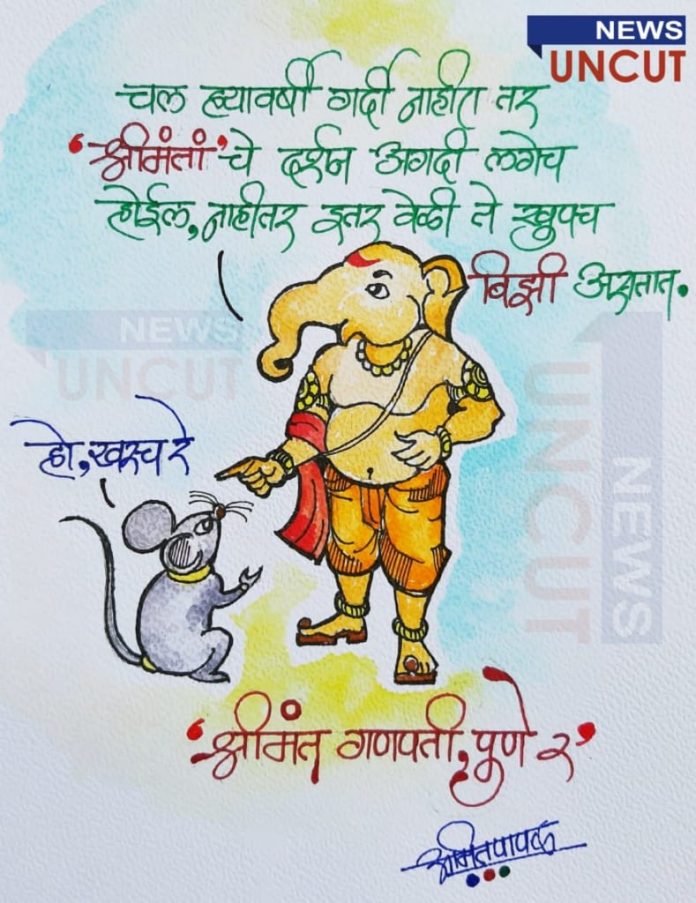 NEWS
UNCUT
चल ह्यावर्षी गर्दी नाहीत तर
'श्रीमंतां'चे दर्शन अगदी लगेच
होईल, नाहीतर इतर वेळी ते खुपच
बिझी असतात.
NEWS
UNCUT
हो, खरच रे
NEWS
UNCUT
'श्रीमंत गणपती, पुणे २'
अमित पापळ